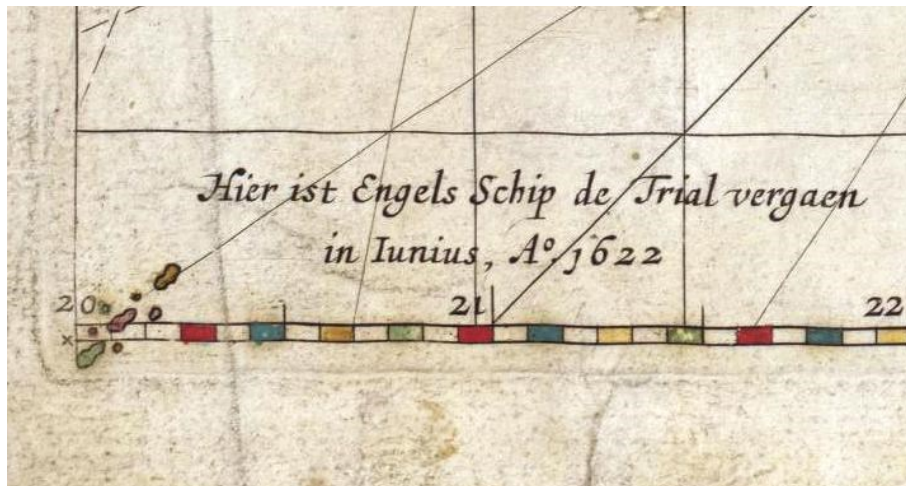 Hier ist Engels Schip de Trial vergaen
in Iunius, Aº. 1622
20 21 22